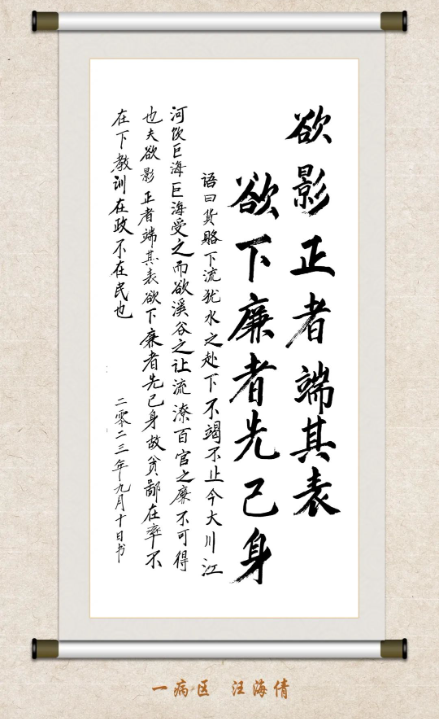 欲影正者端其表
欲下廉者先己身
语曰货赂下流犹水之赴下不竭不止今大川江
河饮巨海巨海受之而欲溪谷之让流潦百官之廉不可得
也夫欲影正者端其表欲下廉者先己身故贪鄙在率不
在下教训在政不在民也
二零二三年九月十日书
一病区 汪海倩